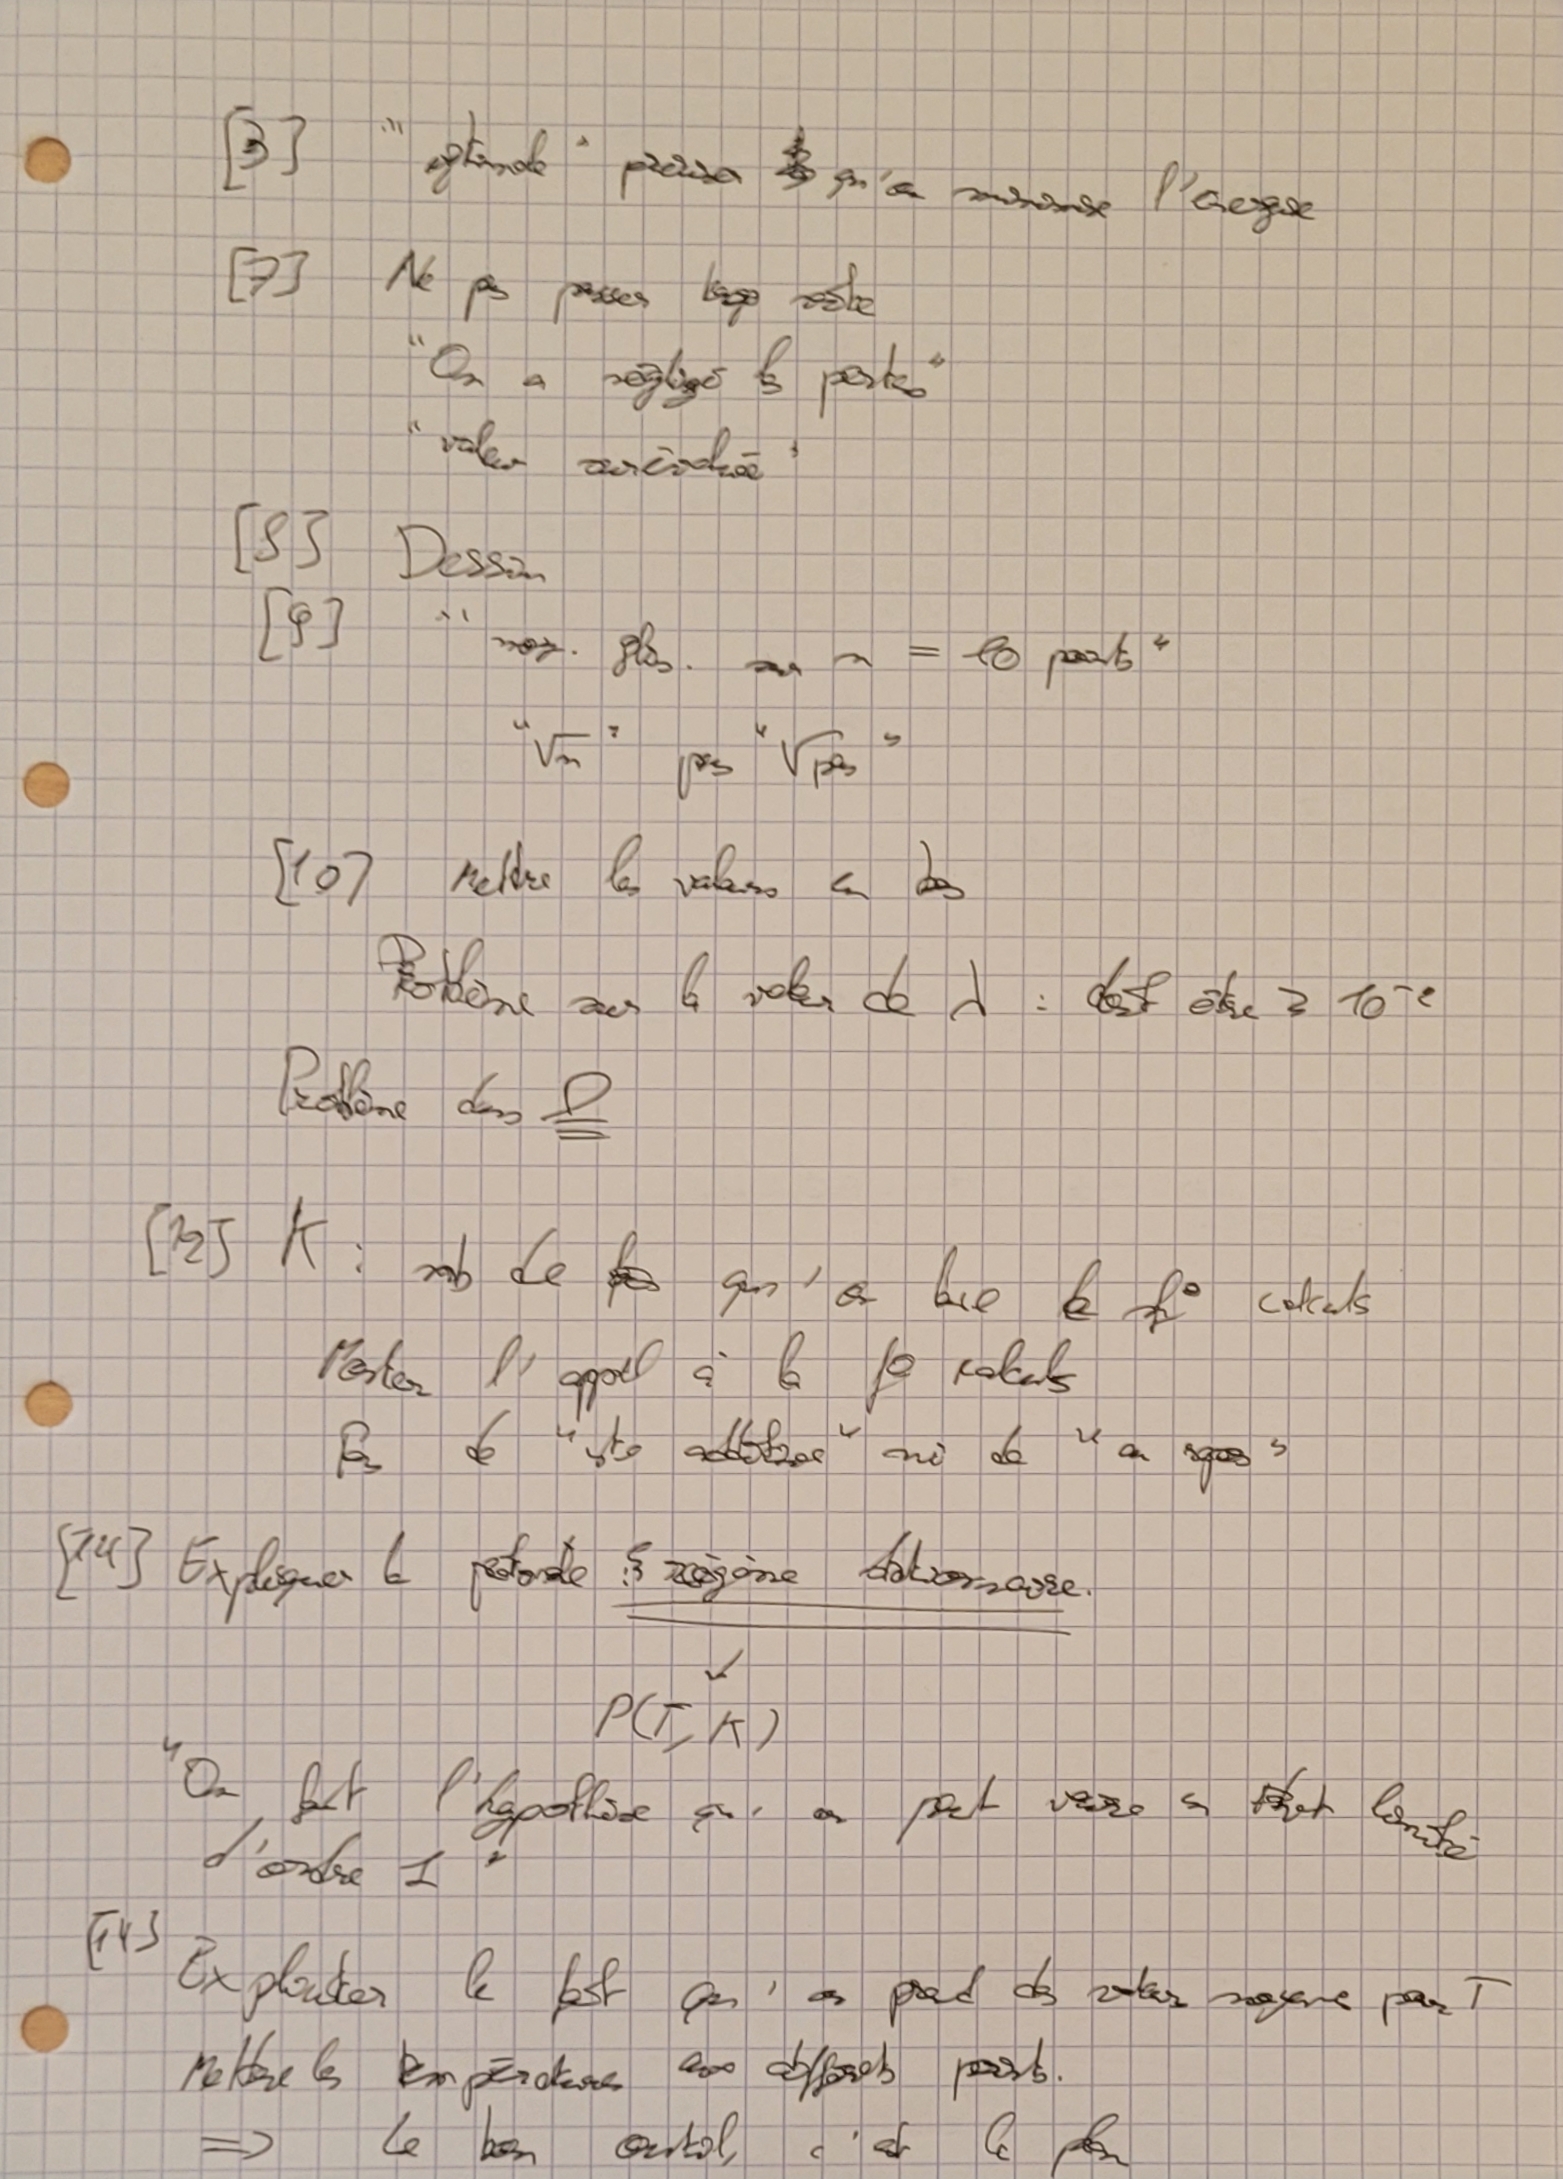 [3] "optimale" préciser qu'on minimise l'énergie
[7] Ne pas passer trop vite
"On a négligé les pertes"
"valeur surévaluée"
[8] Dessin
[9] "moy. glis. sur n = 10 points"
"√n" pas "√pas"
[10] Mettre les valeurs en bas
Problème sur la valeur de λ : doit être ≥ 10⁻²
Problème dans P
[12] K : nb de fois qu'on la calculs
Monter l'appel à la f° calculs
Pas de ni de "
[14] Expliquer le : régime stationnaire.
P(T, K)
"On fait l'hypothèse qu'on peut
d'ordre 1"
[14] Expliciter le fait qu'on prend des valeur moyenne pour T
Mettre les températures aux différents points.
⇒ Le bon outil, c'est le